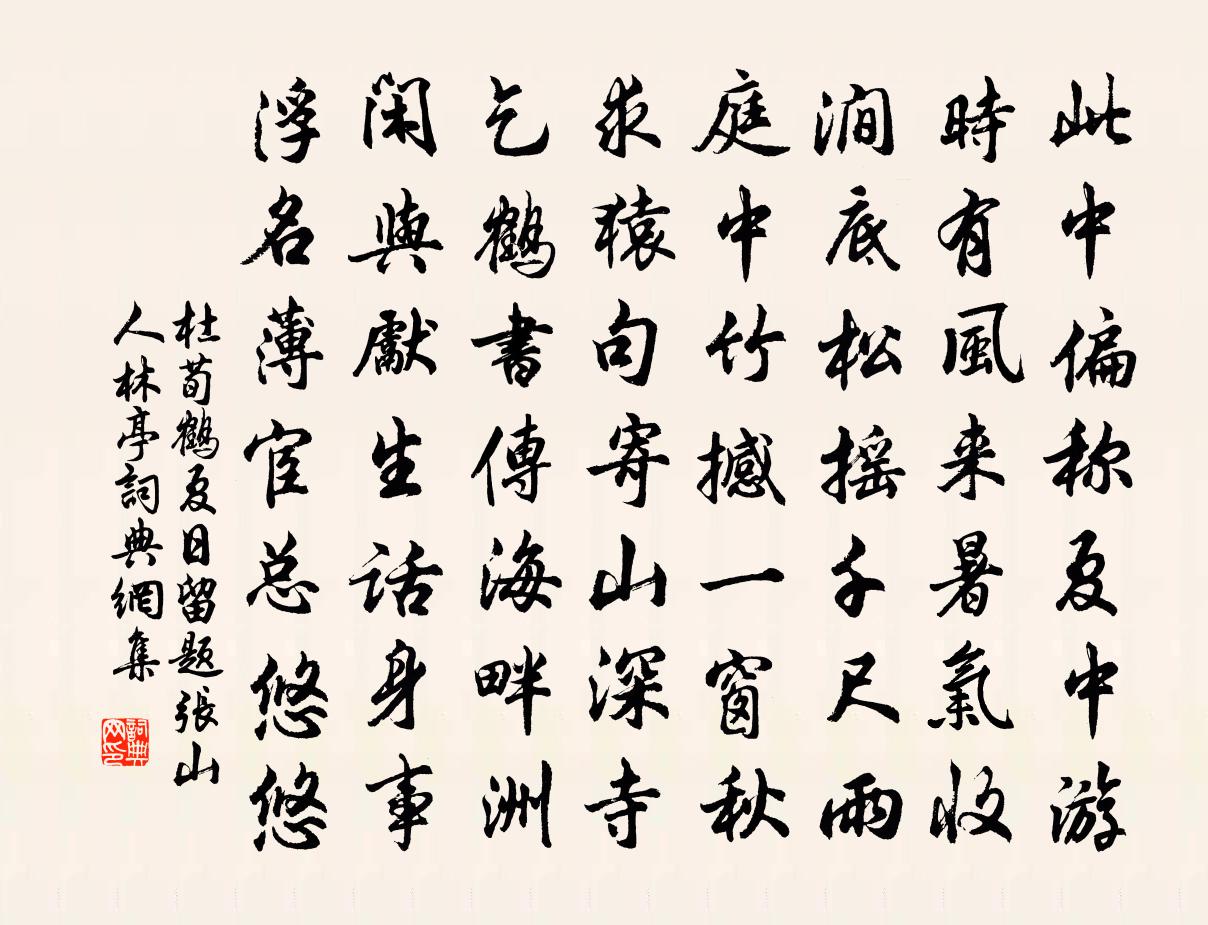 此中偏称夏中游
時有風来暑氣收
澗底松摇千尺雨
庭中竹撼一窗秋
求猿句寄山深寺
乞鶴書傳海畔洲
闲與獻生話身事
浮名薄宦总悠悠
杜荀鶴夏日留题張山
人林亭詞典網集
詞典
网印